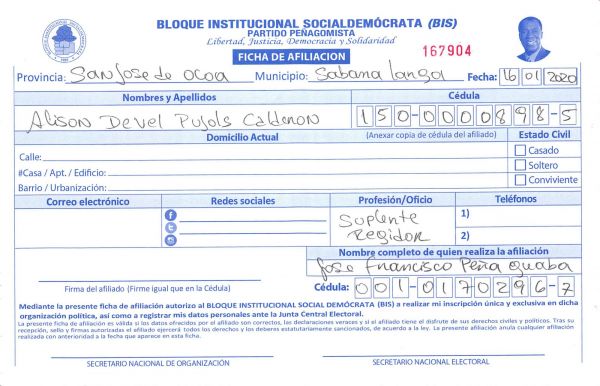 BLOQUE INSTITUCIONAL SOCIALDEMÓCRATA (BIS)
PARTIDO PEÑAGOMISTA
Libertad, Justicia, Democracia y Solidaridad
FICHA DE AFILIACION
167904
Provincia: San Jose de Ocoa Municipio: Sabana Larga Fecha: 16 01 2020
Nombres y Apellidos Cédula
Alison Devel Pujols Calderon 150-0000898-5
Domicilio Actual (Anexar copia de cédula del afiliado) Estado Civil
Calle: Casado
#Casa / Apt. / Edificio: Soltero
Barrio / Urbanización: Conviviente
Correo electrónico Redes sociales Profesión/Oficio Teléfonos
Suplente 1)
Regidor 2)
Nombre completo de quien realiza la afiliación
Jose Francisco Peña Guaba
Firma del afiliado (Firme igual que en la Cédula) Cédula: 001-0170296-7
Mediante la presente ficha de afiliación autorizo al BLOQUE INSTITUCIONAL SOCIAL DEMÓCRATA (BIS) a realizar mi inscripción única y exclusiva en dicha
organización política, así como a registrar mis datos personales ante la Junta Central Electoral.
La presente ficha de afiliación es válida si los datos ofrecidos por el afiliado son correctos, las declaraciones veraces y si el afiliado tiene el disfrute de sus derechos civiles y políticos. Tras su
recepción, sello y firmas autorizadas el afiliado ejercerá todos los derechos y los deberes estatutariamente sancionados, de acuerdo a la ley. La presente afiliación anula cualquier afiliación
realizada con anterioridad a la fecha que aparece en esta ficha.
SECRETARIO NACIONAL DE ORGANIZACIÓN SECRETARIO NACIONAL ELECTORAL